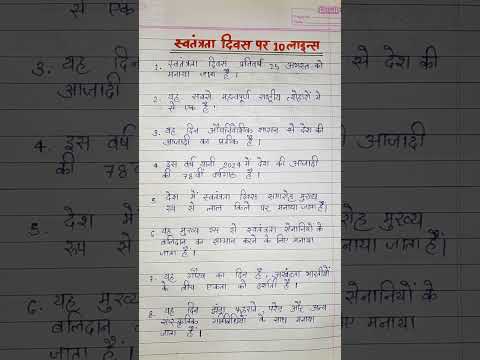 स्वतंत्रता दिवस पर 10 लाइन्स
1. स्वतंत्रता दिवस प्रतिवर्ष 15 अगस्त को
मनाया जाता है।
2. यह सबसे महत्वपूर्ण राष्ट्रीय त्योहारों में
से एक है।
3. यह दिन औपनिवेशिक शासन से देश की
आजादी का प्रतीक है।
4. इस वर्ष यानी 2024 में देश की आजादी
की 78वीं वर्षगांठ है।
5. देश में स्वतंत्रता दिवस समारोह मुख्य
रूप से लाल किले पर मनाया जाता है।
6. यह मुख्य रूप से स्वतंत्रता सेनानियों के
बलिदान का सम्मान करने के लिए मनाया
जाता है।
7. यह गौरव का दिन है,
के बीच एकता को दर्शाता है।
8. यह दिन झंडा फहराने, परेड और अन्य
सांस्कृतिक गतिविधियों के साथ मनाया
जाता है।
3. यह दिन
आजादी
4. इस वर्ष
की 78व
5 देश में
रूप से
6. यह मुख
बलिदान
जाता है
से देश की
आजादी
रोह मुख्य
जाता है।
सेनानियों के
मनाया